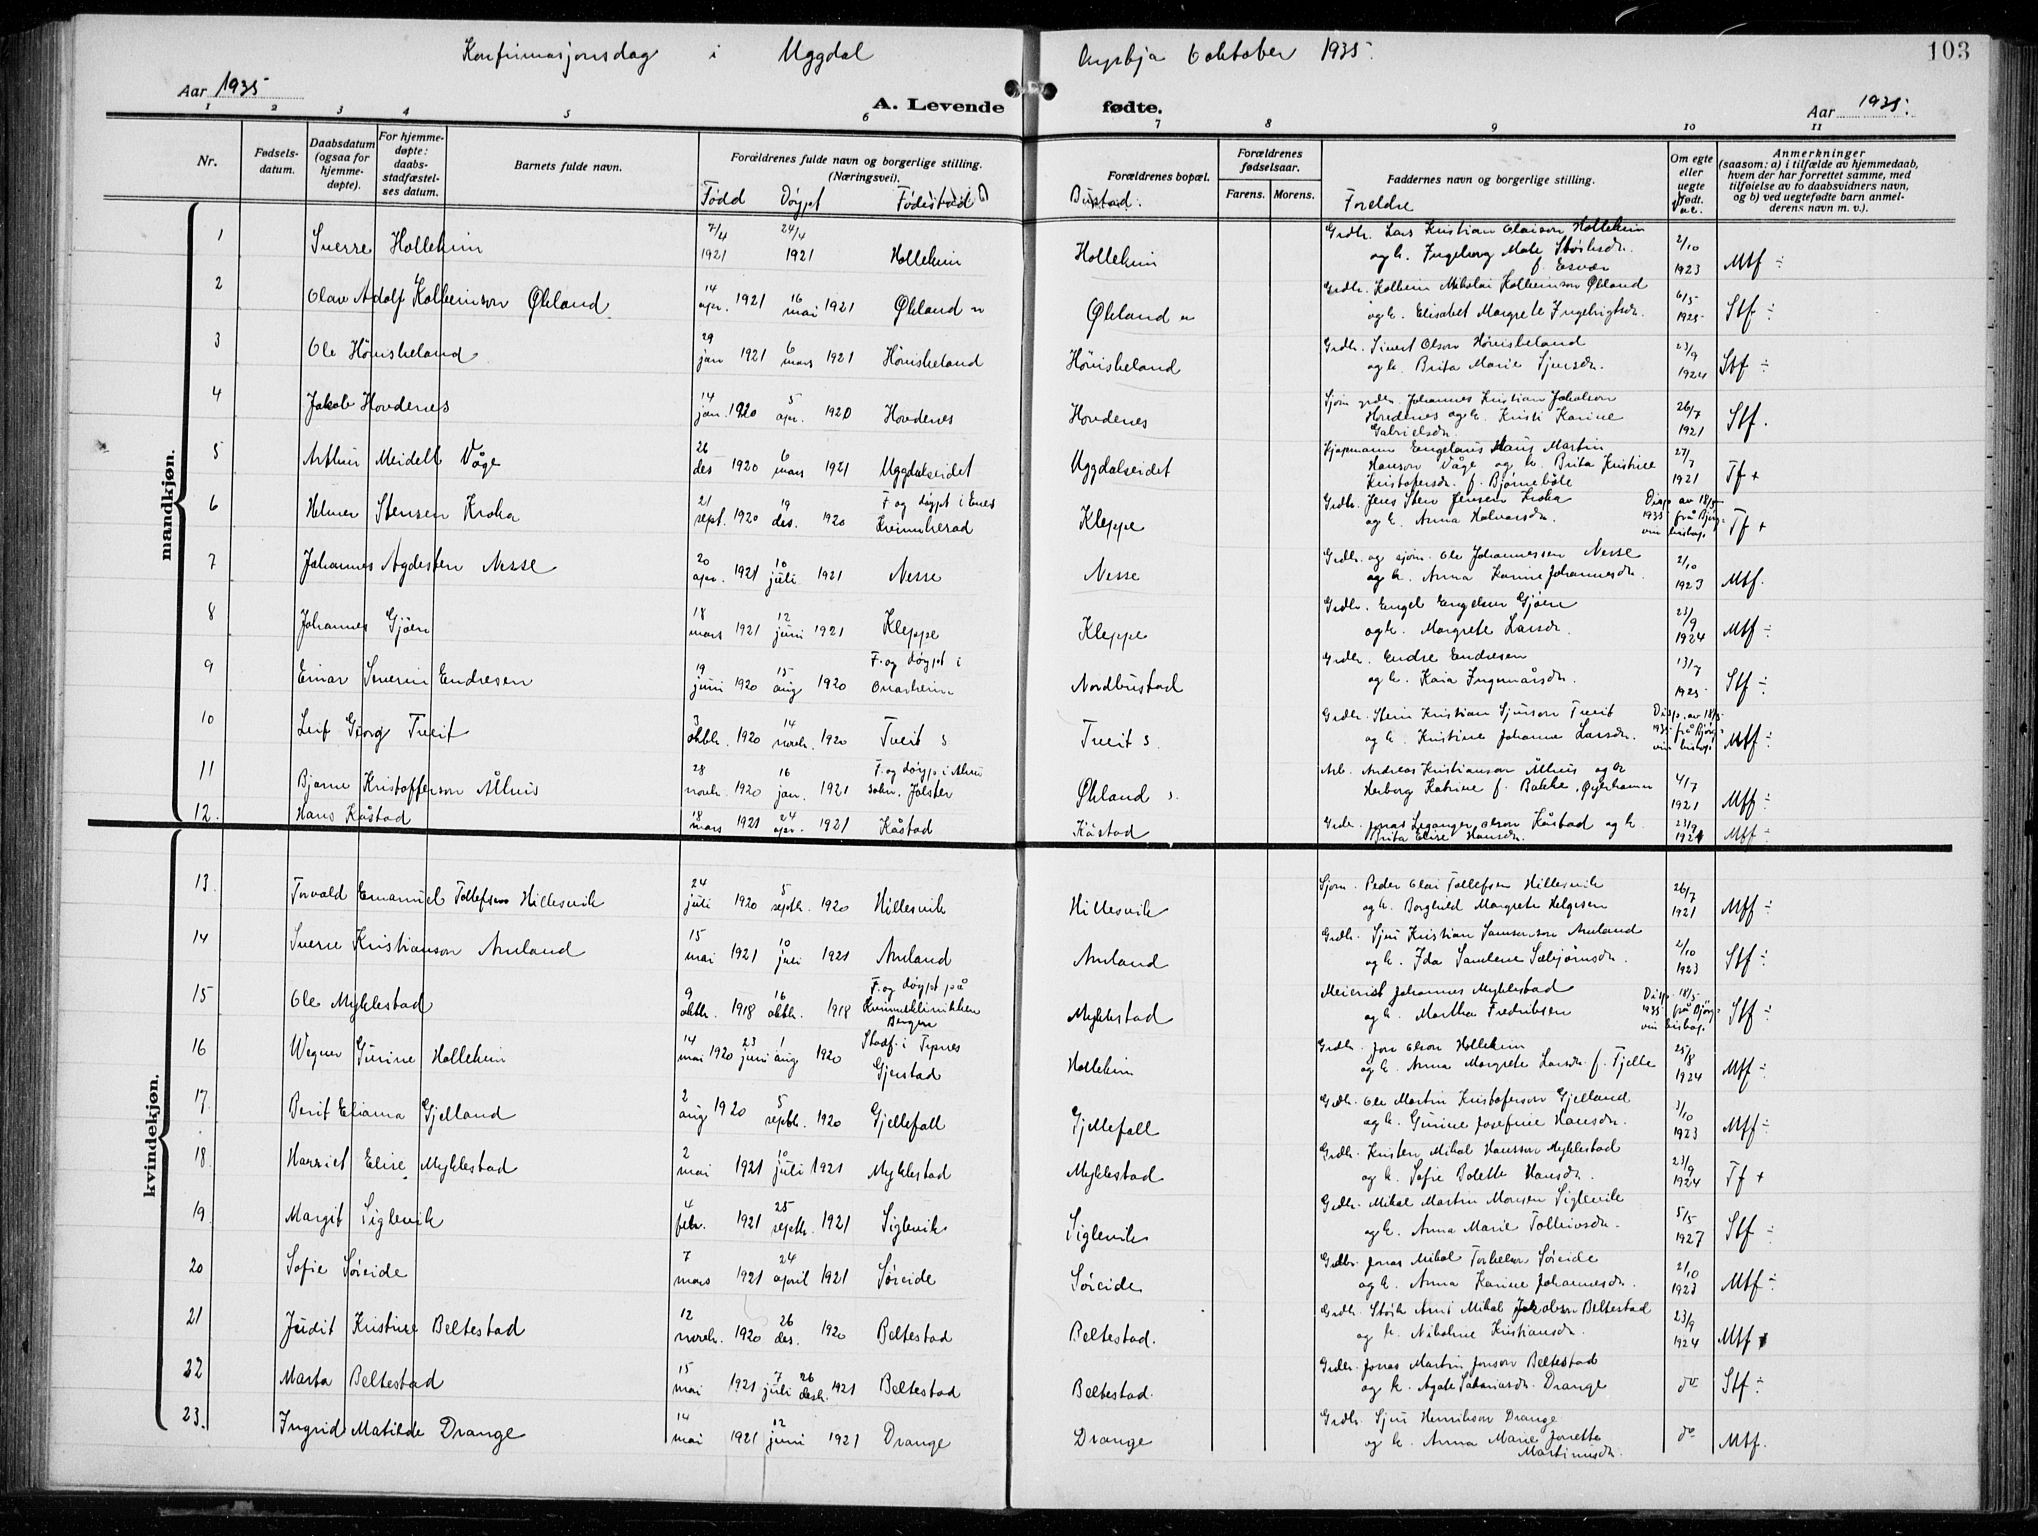 Konfirmasjonsdag i Uggdal 6 oktober 1935.
103
Aar 1935
A. Levende fødte.
Aar 1935.
1 2 3 4 5 6 7 8 9 10 11
Nr.
Fødsels-datum.
Daabsdatum (ogsaa for hjemme-døpte).
For hjemme-døpte: daabs-stadfæstel-ses datum.
Barnets fulde navn.
Forældrenes fulde navn og borgerlige stilling. (Næringsvei).
Forældrenes bopæl.
Forældrenes fødselsaar.
Farens. Morens.
Faddernes navn og borgerlige stilling.
Om egte eller uegte født.
Anmerkninger (saasom: a) i tilfælde av hjemmedaab, hvem der har forrettet samme, med tilføielse av to daabsvidners navn, og b) ved uegtefødte barn anmel-derens navn m. v.).
Fødd Døypt Fødestad Bustad Foreldre
mandkjøn.
1 Sverre Holleheim 7/4 1921 24/4 1921 Holleheim Holleheim Grdbr. Lars Kristian Olaison Holleheim og k. Ingeborg 2/10 1923 Mtf ÷
2 Olav Adolf Kolbeinson Økland 14 apr. 1921 16 mai 1921 Økland n Økland n Grdbr. Kolbein Mikolai Kolbeinson Økland og k. Elisabet Margrete Ingebrigtsdr. 6/5 1925 Stf ÷
3 Ole Hönisheland 29 jan 1921 6 mars 1921 Hönisheland Hönisheland Grdbr. Sivert Olson Hönisheland og k. Brita Marie Sjursdr. 23/9 1924 Stf ÷
4 Jakob Hovdenes 14 jan. 1920 5 apr. 1920 Hovdenes Hovdenes Sjöm. grdbr. Johannes Kristian Jakobson Hovdenes og k. Kristi Karine Gabrielsdr. 26/7 1921 Stf.
5 Arthur Meidell Våge 26 des 1920 6 mars 1921 Uggdalseidet Uggdalseidet Kjöpmann Engelaus Hans Martin Hanson Våge og k. Brita Kristine Kristofersdr. f. 27/7 1921 Tf +
6 Helmer Stensen Kroka 21 sept. 1920 19 des. 1920 F. og døypt i Enes Kvinnherad Kleppe Grdbr. Jens Sten Jensen Kroka og k. Anna Halvarsdr. Disp. av 18/5 1935 frå Björgvin bishop. Tf +
7 Johannes Agdestein Nesse 20 apr. 1921 10 juli 1921 Nesse Nesse Grdbr. og sjöm. Ole Johannessen Nesse og k. Anna Karine Johannesdr. 2/10 1923 Mtf.
8 Johannes Gjöen 18 mars 1921 12 juni 1921 Kleppe Kleppe Grdbr. Engel Engelsen Gjöen og k. Margrete Larsdr. 23/9 1924 Mtf ÷
9 Einar Severin Endresen 19 juni 1920 15 aug 1920 F. og døypt i Onarheim Nordbustad Grdbr. Endre Endresen og k. Kaia Ingemarsdr. 13/7 1925 Stf ÷
10 Leif Georg Tveit 3 oktbr. 1920 14 novbr. 1920 Tveit s Tveit s. Grdbr. Stein Kristian Sjurson Tveit og k. Kristine Johanna Larsdr. Disp. av 18/5 1935 frå Björgvin bishop Mtf ÷
11 Bjarne Kristoffer Ålhus 28 novbr. 1920 16 jan. 1921 F. og døypt i Ålhus sokn. Jølster Økland s. Arb. Andreas Kristianson Ålhus og k. Herborg Katrine f. Bakke, 4/7 1921 Mtf ÷
12. Hans Kåstad 18 mars 1921 24 apr. 1921 Kåstad Kåstad Grdbr. Jonas Olson Kåstad og k. Brita Elise Hansdr. 23/9 1924 Mtf ÷
kvindekjøn.
13 Torvald Emanuel Tollefsen Hillesvik 24 juli 1920 5 septbr. 1920 Hillesvik Hillesvik Sjöm. Peder Olai Tollefsen Hillesvik og k. Borghild Margrete Helgesen 26/7 1921 Mtf ÷
14 Sverre Kristianson Amland 15 mai 1921 10 juli 1921 Amland Amland Grdbr. Sjur Kristian Samsonson Amland og k. Ida Samline Sæbjörnsdr. 2/10 1923 Stf ÷
15 Ole Myklestad 9 oktbr. 1918 16 oktbr. 1918 F. og døypt på Kvinneklinikken Bergen Myklestad Meierist Johannes Myklestad og k. Martha Fredriksen Disp. 18/5 1935 frå Björgvin bishop. Stf ÷
16 Wegner Gurine Holleheim 14 mai 1920 23 juni 1 aug 1920 Stadf. i Tysnes Gjerstad Holleheim Grdbr. Jon Olson Holleheim og k. Anna Margrete Larsdr. f. Tjelle 25/8 1924 Mtf ÷
17 Berit Eliana Gjelland 2 aug 1920 5 septbr. 1920 Gjellefall Gjellefall Grdbr. Ole Martin Kristoferson Gjelland og k. Gurine Josefine Hansdr. 3/10 1923 Mtf ÷
18 Harriet Elise Myklestad 2 mai 1921 10 juli 1921 Myklestad Myklestad Grdbr. Kristen Mikal Hansson Myklestad og k. Sofie Bolette Hansdr. 23/9 1924 Tf +
19 Margit Siglevik 4 febr. 1921 25 septbr. 1921 Siglevik Siglevik Grdbr. Mikal Martin Monsen Siglevik og k. Anna Marie Tolleivsdr. 5/5 1927 Stf ÷
20 Sofie Søreide 7 mars 1921 24 april 1921 Søreide Søreide Grdbr. Jonas Mikal Torkelsen Søreide og k. Anna Karine Johannesdr. 2/10 1923 Mtf ÷
21 Judit Kristine Beltestad 12 novbr. 1920 26 des. 1920 Beltestad Beltestad. Grdbr. Arni Mikal Jakobson Beltestad og k. Nikoline Kristiansdr. 23/9 1924 Mtf
22 Marta Beltestad 15 mai 1921 7 juli 26 desbr. 1921 Beltestad Beltestad. Grdbr. Jonas Martin Jonson Beltestad og k. Agate Sakariasdr. Drange do Stf ÷
23. Ingrid Matilde Drange 14 mai 1921 12 juni 1921 Drange Drange Grdbr. Sjur Henrikson Drange og k. Anna Marie Jonette Martinusdr. do Mtf.